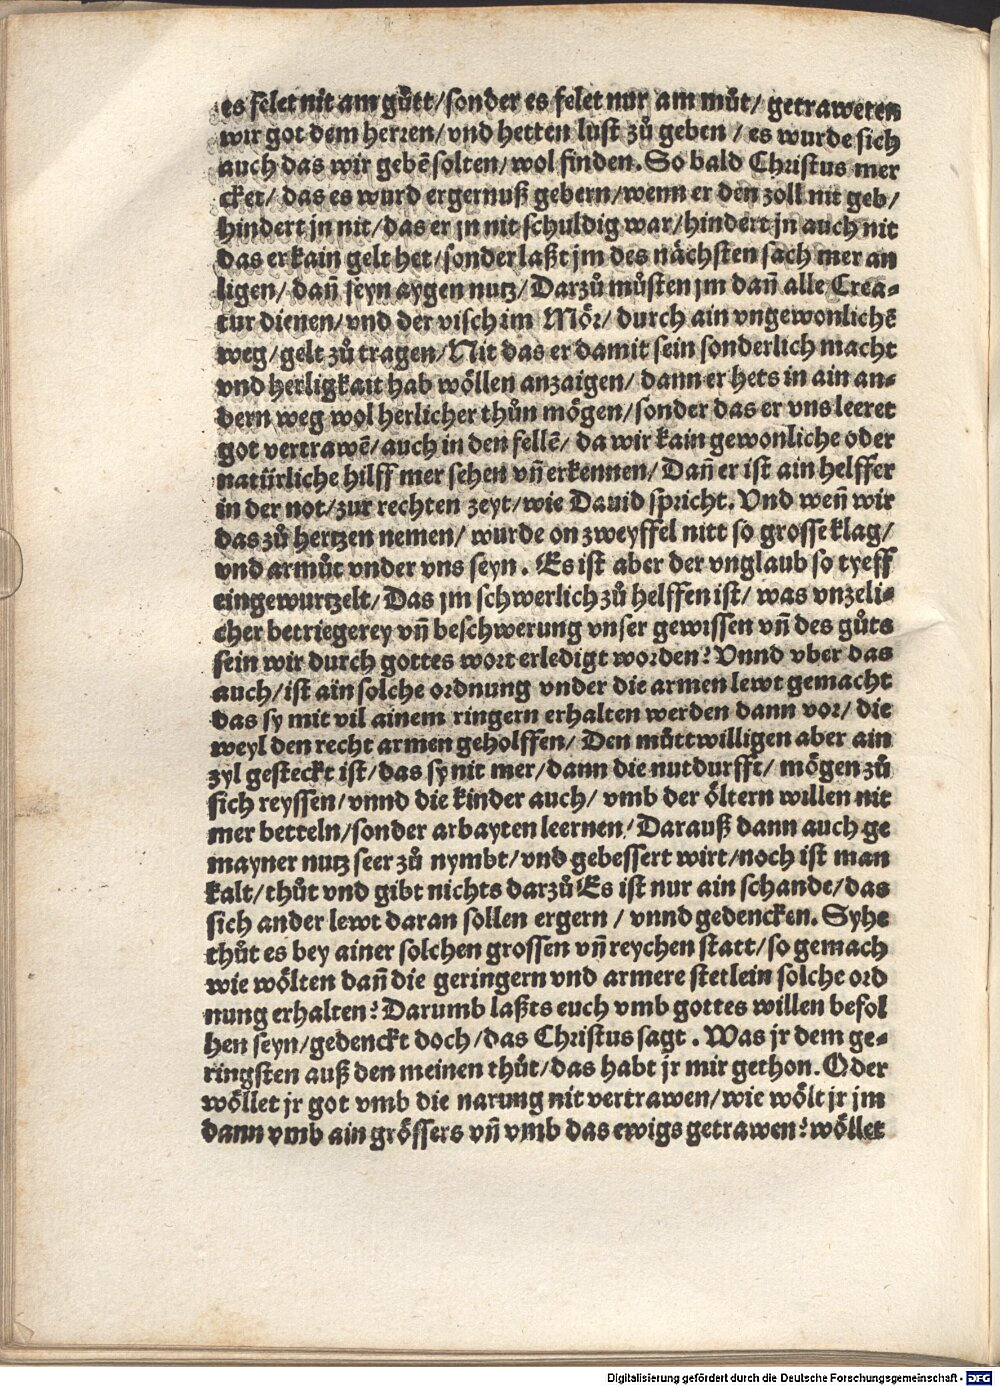 es felet nit am guͦtt/sonder es felet nur am muͦt/ getraweten
wir got dem herren/vnd hetten lust zuͦ geben / es wurde sich
auch das wir gebē solten/wol finden. So bald Christus mer
cket/ das es wurd ergernuß gebern/wenn er den zoll nit geb/
hindert jn nit/das er jn nit schuldig war/hindert jn auch nit
das er kain gelt het/sonder laßt jm des nächsten sach mer an
ligen/ dañ seyn aygen nutz/ Darzuͦ muͦsten jm dañ alle Crea-
tur dienen/vnd der visch im Mör/ durch ain vngewonlichē
weg/gelt zuͦ tragen/Nit das er damit sein sonderlich macht
vnd herligkait hab wöllen anzaigen/ dann er hets in ain an-
dern weg wol herlicher thuͦn mögen/sonder das er vns leeret
got vertrawē/auch in den fellē/ da wir kain gewonliche oder
natürliche hilff mer sehen vñ erkennen/ Dañ er ist ain helffer
in der not/zur rechten zeyt/wie Dauid spricht. Vnd weñ wir
das zuͦ hertzen nemen/ wurde on zweyffel nitt so grosse klag/
vnd armuͦt vnder vns seyn. Es ist aber der vnglaub so tyeff
eingewurtzelt/Das jm schwerlich zuͦ helffen ist/ was vnzeli-
cher betriegerey vñ beschwerung vnser gewissen vñ des guͦts
sein wir durch gottes wort erledigt worden? Vnnd vber das
auch/ist ain solche ordnung vnder die armen lewt gemacht
das sy mit vil ainem ringern erhalten werden dann vor/ die
weyl den recht armen geholffen/ Den muͦttwilligen aber ain
zyl gesteckt ist/das sy nit mer/dann die nutdurfft/ mögen zuͦ
sich reyssen/vnnd die kinder auch/ vmb der öltern willen nit
mer betteln/sonder arbayten leernen/ Darauß dann auch ge
mayner nutz seer zuͦ nymbt/vnd gebessert wirt/noch ist man
kalt/thuͦt vnd gibt nichts darzuͦ Es ist nur ain schande/das
sich ander lewt daran sollen ergern / vnnd gedencken. Syhe
thuͦt es bey ainer solchen grossen vñ reychen statt/so gemach
wie wölten dañ die geringern vnd armere stetlein solche ord
nung erhalten? Darumb laßts euch vmb gottes willen befol
hen seyn/gedenckt doch/das Christus sagt . Was jr dem ge-
ringsten auß den meinen thuͦt/das habt jr mir gethon. Oder
wöllet jr got vmb die narung nit vertrawen/wie wölt jr jm
dann vmb ain grössers vñ vmb das ewigs getrawen? wöllet
Digitalisierung gefördert durch die Deutsche Forschungsgemeinschaft - DFG